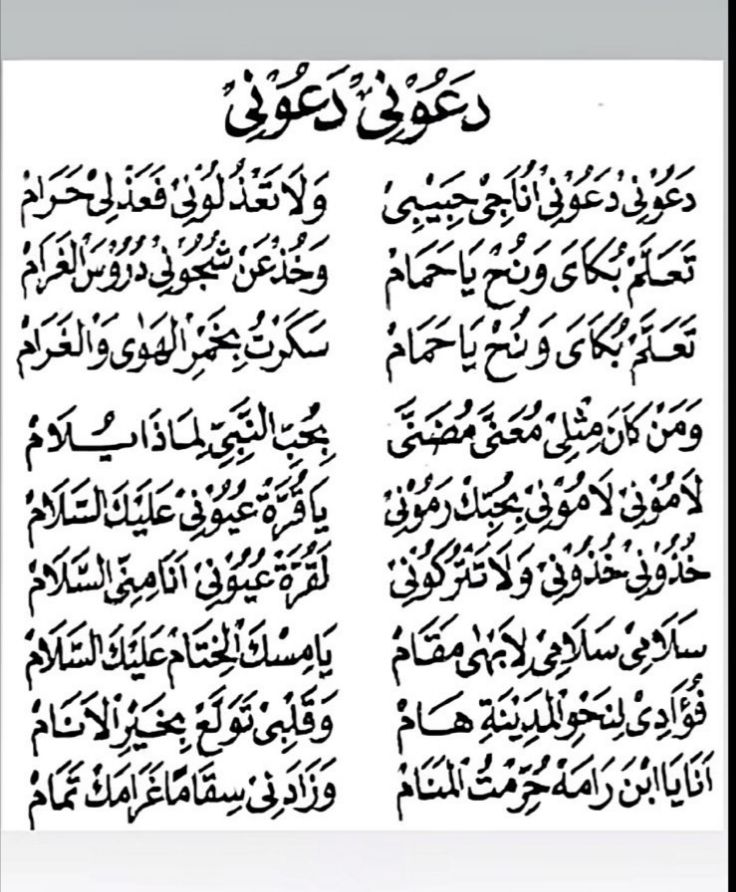 دَعُوْنِيْ دَعُوْنِيْ
دَعُوْنِيْ دَعُوْنِيْ اُنَاجِيْ حَبِيْبِيْ وَلَا تَعْذُلُوْنِيْ فَعَذْلِيْ حَرَامْ
تَعَلَّمْ بُكَاىَ وَنُحْ يَا حَمَامْ وَخُذْ عَنْ شُجُوْنِيْ دُرُوْسَ الْغَرَامْ
تَعَلَّمْ بُكَاىَ وَنُحْ يَا حَمَامْ سَكَرْتُ بِخَمْرِ الْهَوٰى وَالْغَرَامْ
وَمَنْ كَانَ مِثْلِيْ مُعَنًّى مُضَنًّى بِحُبِّ النَّبِيِّ لِمَاذَا يُلَامْ
لَامُوْنِيْ لَامُوْنِيْ بِحُبِّكْ رَمُوْنِيْ يَا قُرَّةْ عُيُوْنِيْ عَلَيْكَ السَّلَامْ
خُذُوْنِيْ خُذُوْنِيْ وَلَا تَتْرُكُوْنِيْ لَقُرَّةْ عُيُوْنِيْ اَنَا مِنِّى السَّلَامْ
سَلَامِيْ سَلَامِيْ لِاَبْهٰى مَقَامْ يَا مِسْكَ الْخِتَامْ عَلَيْكَ السَّلَامْ
فُؤَادِىْ لِنَحْوِ الْمَدِيْنَةِ هَامْ وَقَلْبِىْ تَوَلَّعْ بِخَيْرِ الْاَنَامْ
اَنَا يَا ابْنَ رَامَهْ حُرِّمْتُ الْمَنَامْ وَزَادَنِيْ سِقَامًا غَرَامَكْ تَمَامْ